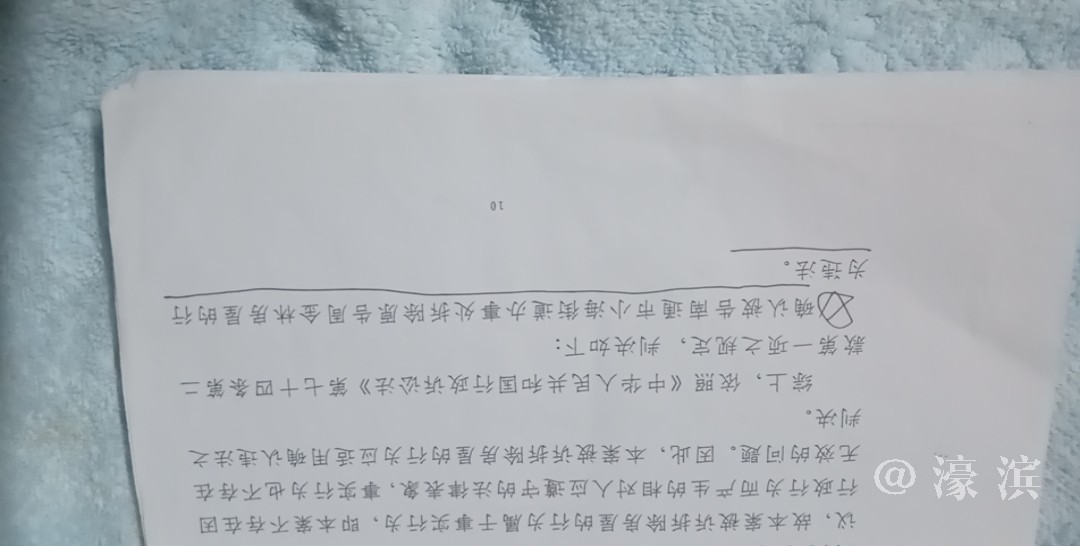 议，故本案被诉拆除房屋的行为属于事实行为，即本案不存在因
行政行为而产生的相对人应遵守的法律表象，事实行为也不存在
无效的问题。因此，本案被诉拆除房屋的行为应适用确认违法之
判决。
综上，依照《中华人民共和国行政诉讼法》第七十四条第二
款第一项之规定，判决如下：
确认被告南通市小海街道办事处拆除原告周金林房屋的行
为违法。
10
@濠滨